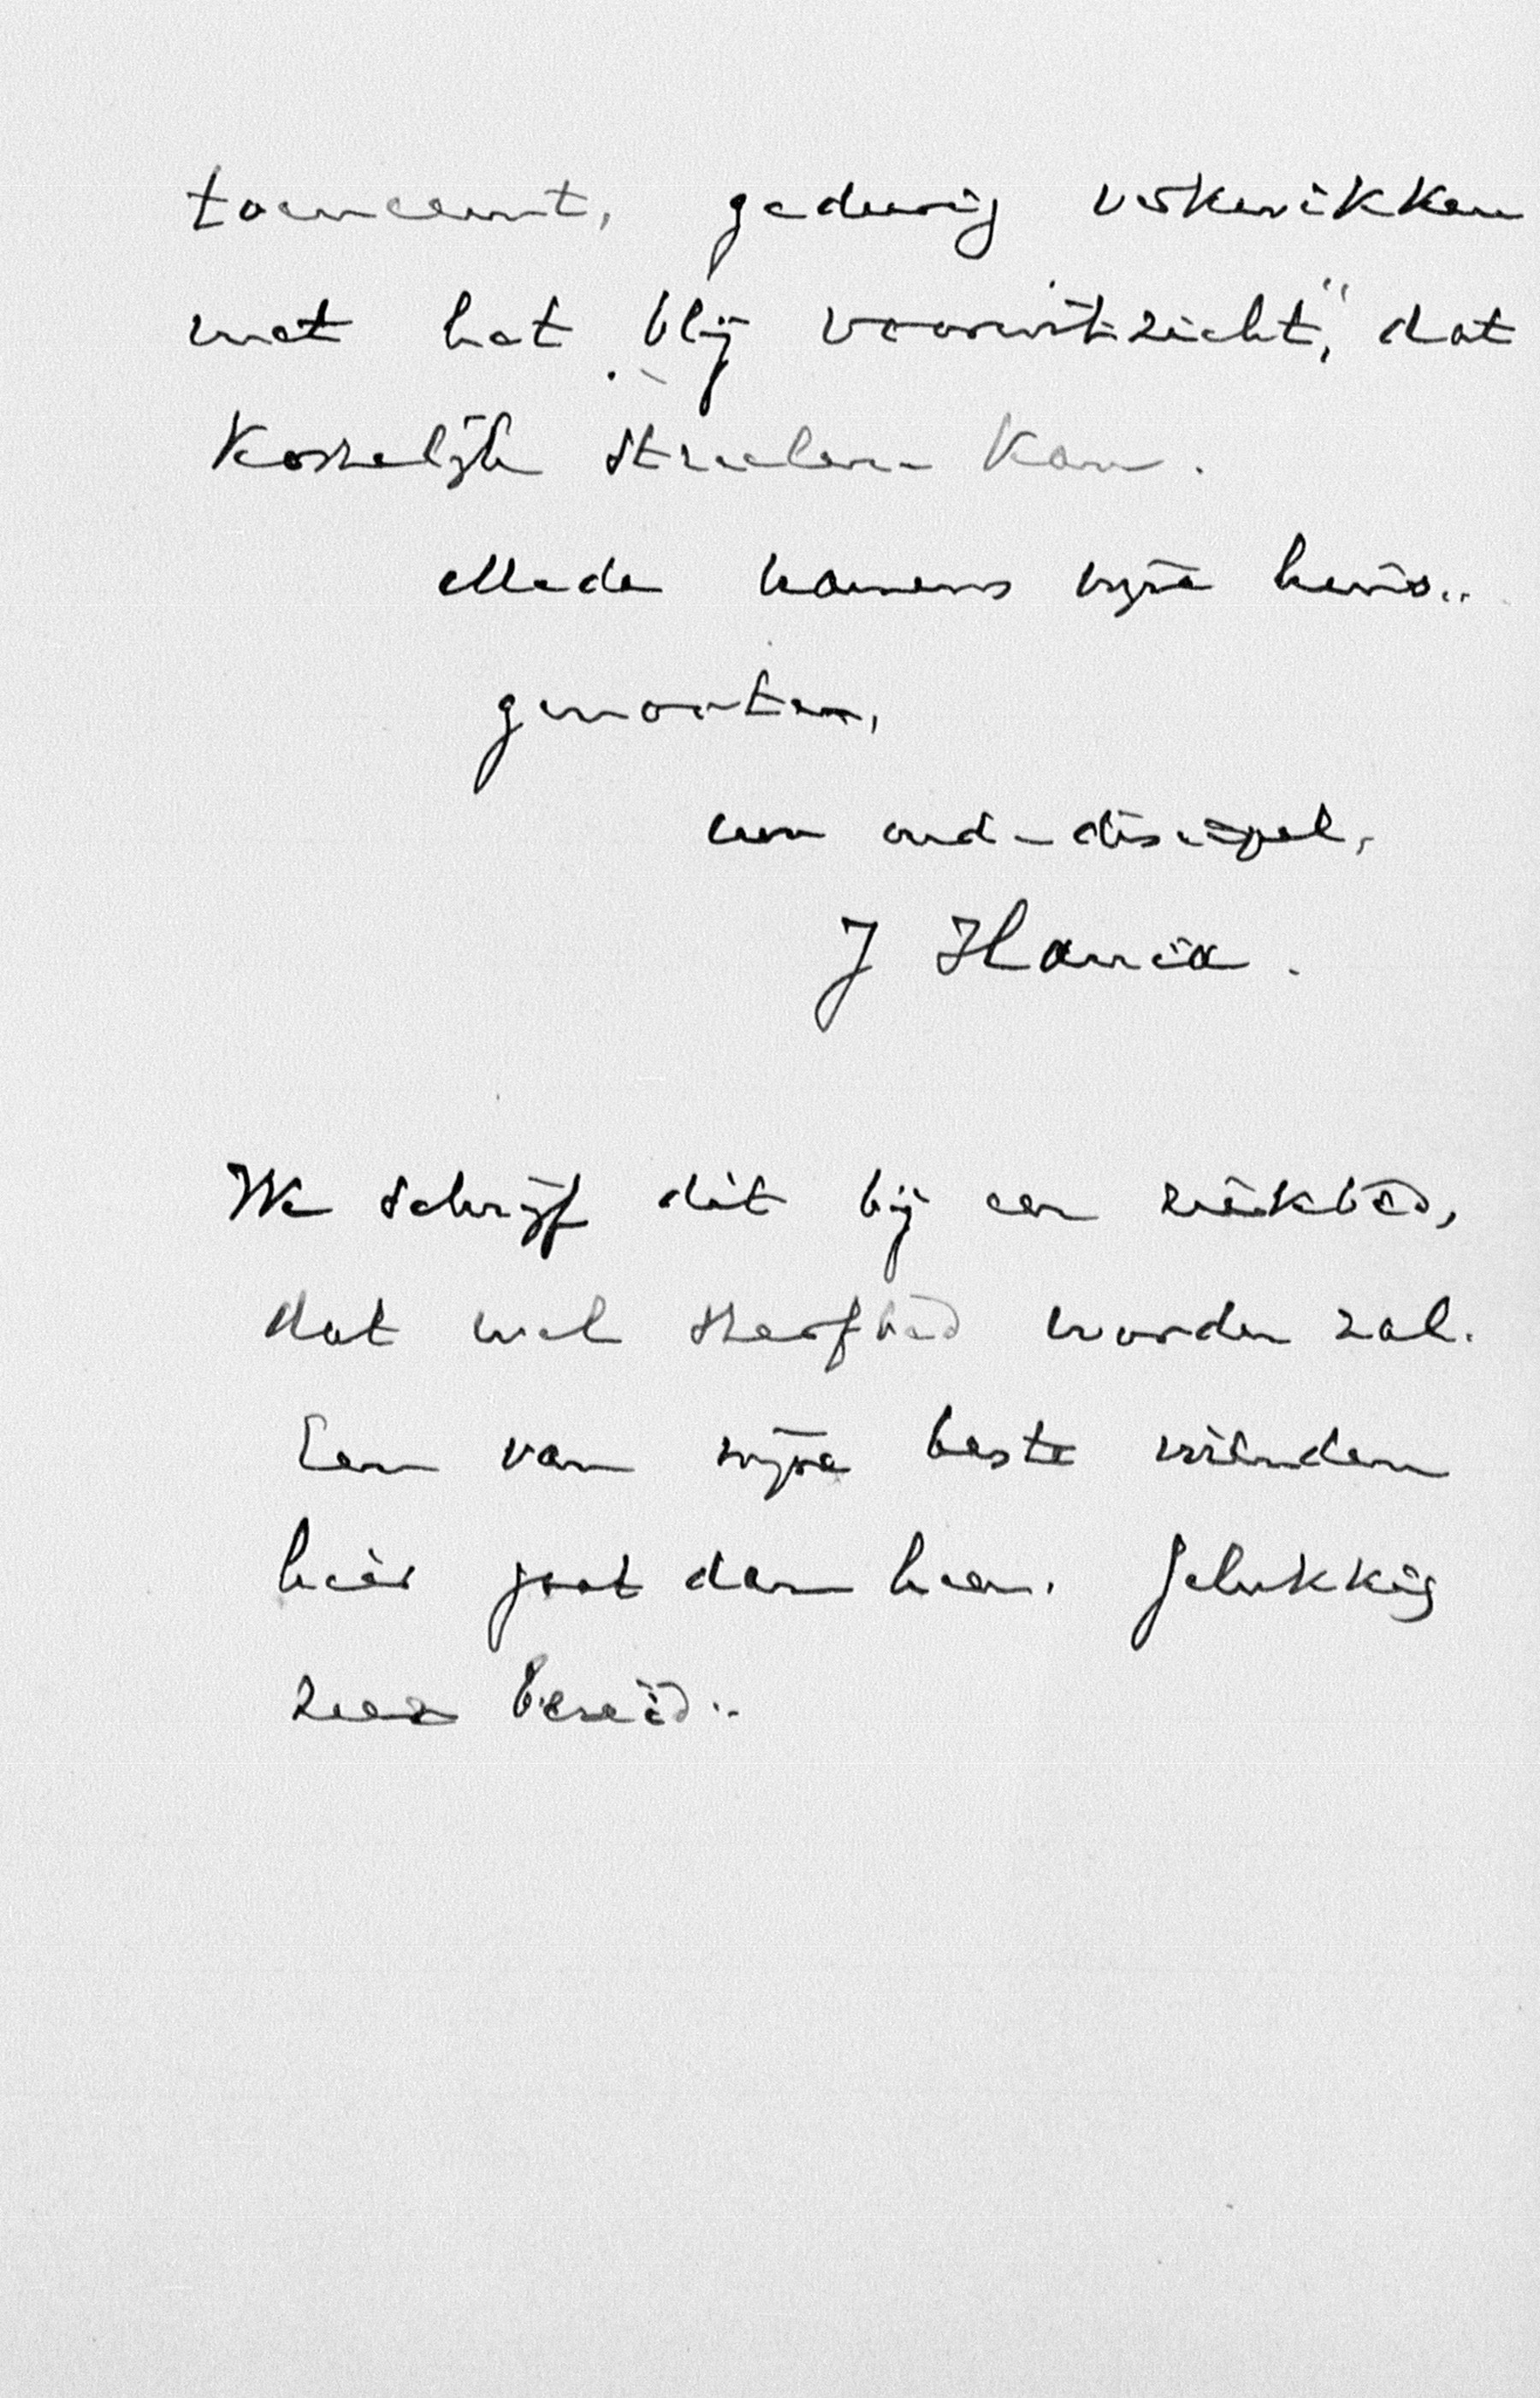 toeneemt, gedurig verkwikken
met het „blij vooruitzicht," dat
kostelijk streelen kan.
Mede namens mijne huis„
genooten,
uw oud-discipel,
J Hania.
Ik schrijf dit bij een ziekbed,
dat wel sterfbed worden zal.
Een van mijne beste vrienden
hier gaat dan heen. Gelukkig
zeer bereid.-